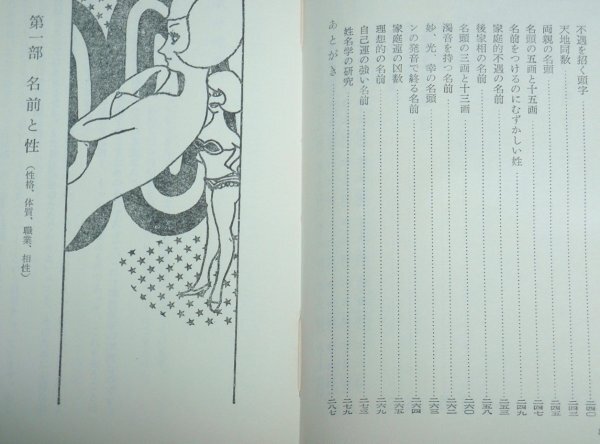 不遇を招く頭字……二四〇
天地同数……二四三
両親の名頭……二四五
名頭の五画と十五画……二四七
名前をつけるのにむずかしい姓……二四九
家庭的不遇の名前……二五三
後家相の名前……二五八
名頭の三画と十三画……二六〇
濁音を持つ名前……二六二
妙 光 幸の名頭……二六三
ンの発音で終る名前……二六四
家庭運の凶数……二六五
理想的の名前……二六九
自己運の強い名前……二七三
姓名学の研究……二七九
あとがき……二八七
第一部 名前と性（性格、体質、職業、相性）